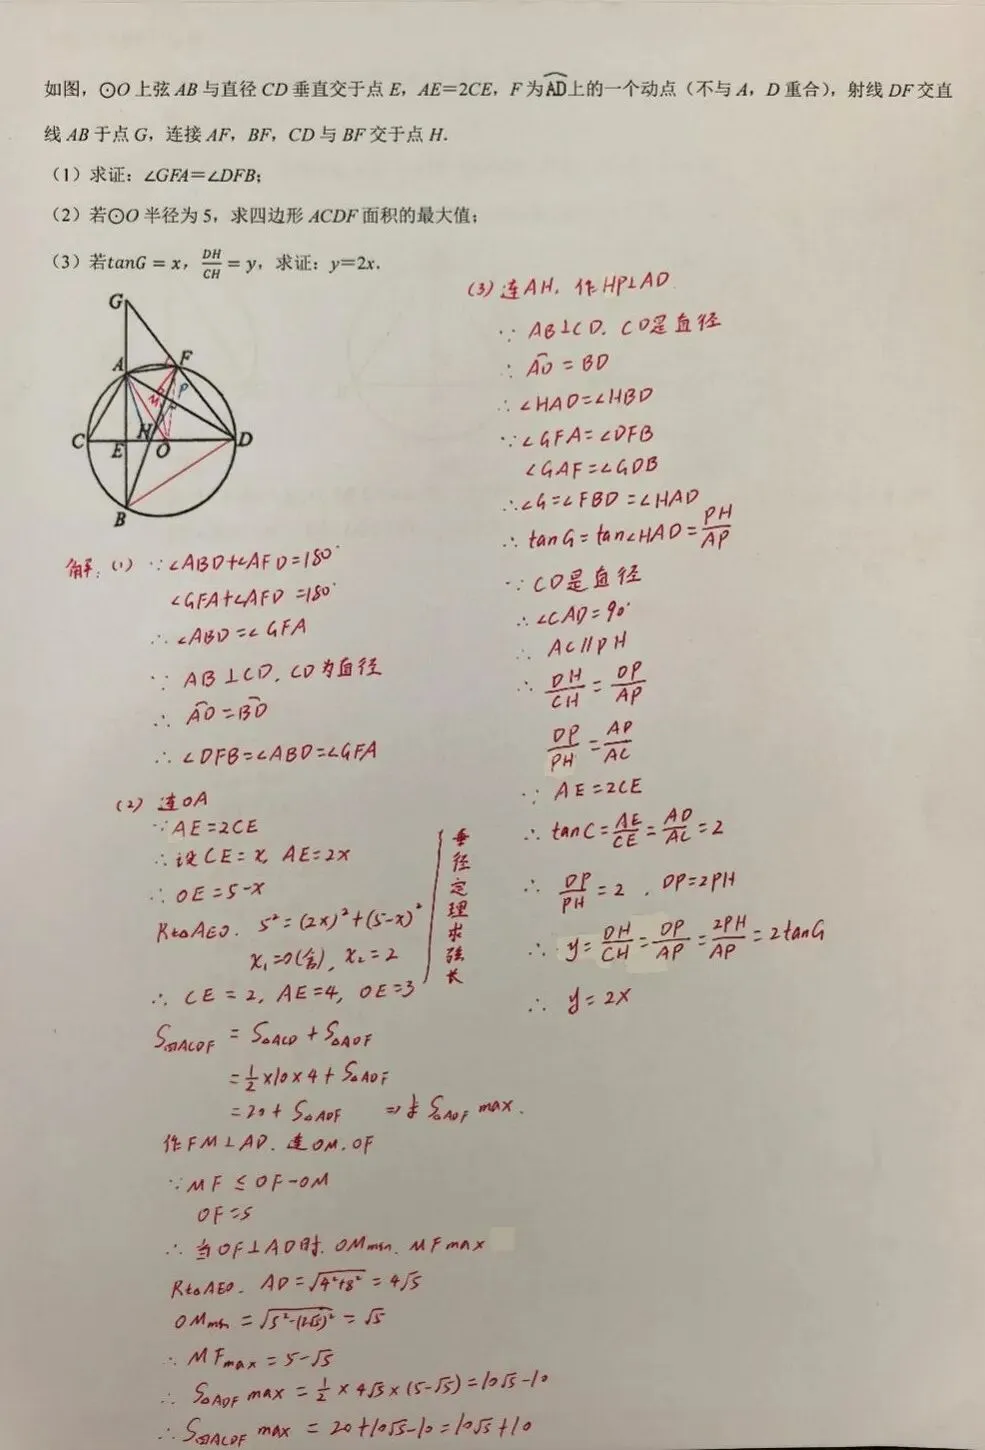 如图，⊙O上弦AB与直径CD垂直交于点E，AE=2CE，F为A͡D上的一个动点（不与A，D重合），射线DF交直
线AB于点G，连接AF，BF，CD与BF交于点H．
（1）求证：∠GFA=∠DFB；
（2）若⊙O半径为5，求四边形ACDF面积的最大值；
（3）若tanG = x，DH/CH = y，求证：y=2x．
G
A
F
P
M
C
E
H
O
D
B
解：(1) ∵∠ABD+∠AFD=180°
∠GFA+∠AFD=180°
∴∠ABD=∠GFA
∵ AB⊥CD，CD为直径
∴ A͡D=B͡D
∴∠DFB=∠ABD=∠GFA
(2) 连OA
∵AE=2CE
∴设CE=x, AE=2x
∴ OE=5-x
Rt△AEO. 5²=(2x)²+(5-x)²
x₁=0(舍), x₂=2
∴ CE=2, AE=4, OE=3
垂径定理求弦长
S四ACDF = S△ACD + S△ADF
=1/2×10×4+S△ADF
=20+S△ADF ⇒求S△ADF max.
作FM⊥AD. 连OM. OF
∵MF≤OF-OM
OF=5
∴当OF⊥AD时. OMmin. MFmax
Rt△AEO. AD=√(4²+8²)=4√5
OMmin=√(5²-(2√5)²)=√5
∴ MFmax=5-√5
∴ S△ADF max=1/2×4√5×(5-√5)=10√5-10
∴ S四ACDF max=20+10√5-10=10√5+10
(3) 连AH. 作HP⊥AD.
∵ AB⊥CD. CD是直径
∴ A͡D=BD
∴∠HAD=∠HBD
∵∠GFA=∠DFB
∠GAF=∠GDB
∴∠G=∠FBD=∠HAD
∴ tanG=tan∠HAD=PH/AP
∵ CD是直径
∴∠CAD=90°
∴ AC∥PH
∴ DH/CH=DP/AP
DP/PH=AD/AC
∵ AE=2CE
∴ tanC=AE/CE=AD/AC=2
∴ DP/PH=2. DP=2PH
∴ y=DH/CH=DP/AP=2PH/AP=2tanG
∴ y=2x